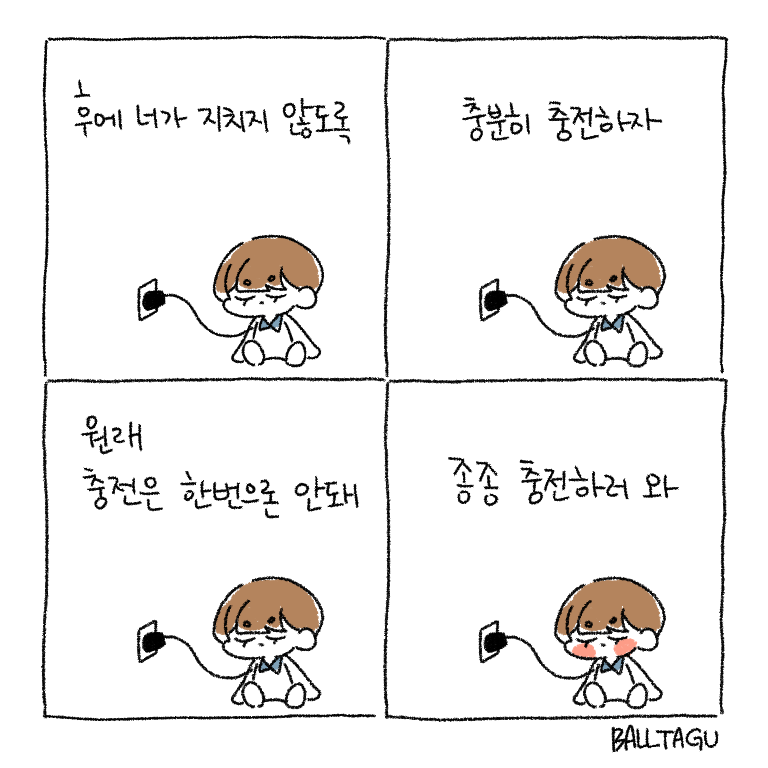 후에 너가 지치지 않도록
충분히 충전하자
원래
충전은 한번으론 안돼
종종 충전하러 와
BALLTAGU